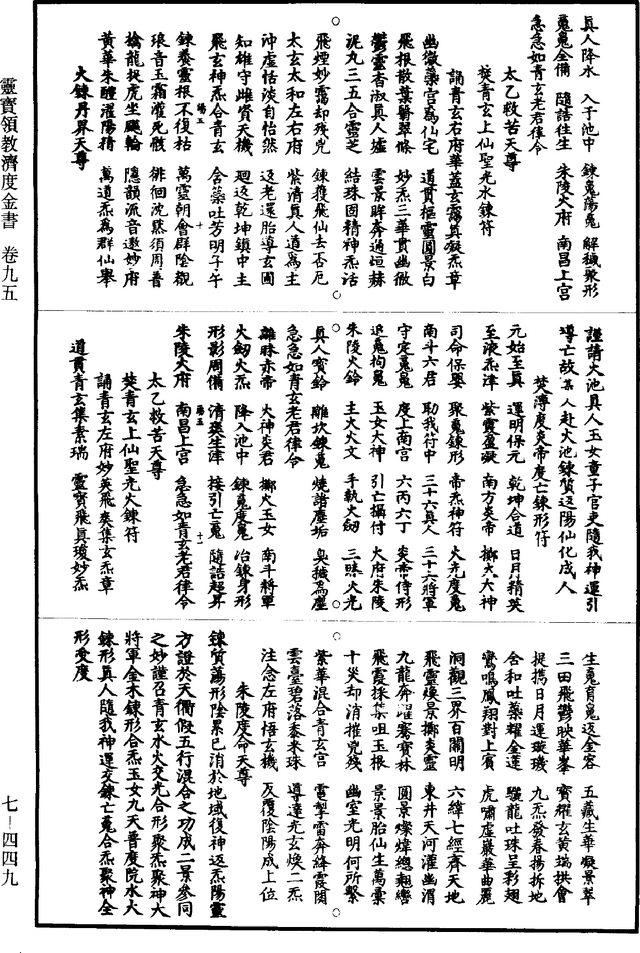 真人降水　入于池中　鍊䰟蕩䰟　解穢聚形
䰟䰟全備　隨誥往生　朱陵火府　南昌上宮
急急如青玄老君律令
太乙救苦天尊
焚青玄上仙聖光水鍊符
誦青玄右府華蓋玄靄真凝炁章
幽微藥宮爲仙宅　道貫樞靈圓景白
飛根散葉鬱翠條　妙炁三華貫幽微
鬱靈杳淑真人墟　雲景眸奔通垣赫
泥丸三五合靈芝　結珠固精神炁活
飛煙妙靄却殘兇　鍊擭飛仙去否厄
太玄太和左右府　紫清真人道爲主
沖虛恬淡自怡然　返老還胎導玄圃
知雄守雌質天機　廻返乾坤鎖中主
飛玄神炁合青玄　含藥吐芳明子午
鍊養靈根不復枯　萬靈朝會群陰觀
琅音玉霜灌死骸　徘徊沈黙須周普
擒龍捉虎坐飈輪　隱韻流音遨妙府
黃華朱醴濯陽精　萬道炁爲群仙舉
火鍊丹界天尊
謹請火池真人玉女童子官吏隨我神運引
導亡故某人赴火池鍊質返陽仙化成人
焚溥度炎帝度亡鍊形符
元始至真　運明保元　乾坤合道　日月精英
至液炁津　紫靈盈凝　南方炎帝　擲火大神
司命保嬰　聚䰟鍊形　帝炁神符　火光度䰟
南斗六君　助我符中　三十六真人　三十六將軍
守定䰟䰟　度上南宮　六丙六丁　炎帝侍形
追䰟拘䰟　玉女大神　引亡攝付　火府朱陵
朱陵火鈴　主火火文　手執火劒　三昧火光
真人寶鈴　離坎鍊䰟　燒諸塵垢　臭穢爲塵
急急如青玄老君律令
離昧赤帝　火神炎君　擲火玉女　南斗將軍
火劒火炁　降入池中　鍊䰟度䰟　冶鍊身形
形影周備　清淡生津　接引亡䰟　隨誥超昇
朱陵火府　南昌上宮　急急如青玄老君律令
太乙救苦天尊
焚青玄上仙聖光火鍊符
誦青玄左府妙英飛奏集玄炁章
道貫青玄集素瑞　靈寶飛真瓊妙炁
生䰟育䰟返金容　五藏生華凝景萃
三田飛鬱映華峯　寶耀玄黃瑞拱會
提攜日月運璇璣　九炁發春揚拆地
含和吐藥耀金蓮　驪龍吐珠呈彩翅
鸞鳴鳳翔對上賓　虎嘯虛巖華曲麗
洞觀三界百關明　六緯七經齊天地
飛靈煥景擲炎靈　東井天河灌幽涓
九龍奔躍騫寶林　圓景燦煒總翹轡
飛霞採集咀玉根　景景胎仙生萬彙
十炎却消摧兇殘　幽室光明何所繫
紫華混合青玄宮　電掣雷奔絳霞関
雲臺碧落黍米珠　導達光玄煥二炁
注念左府悟玄機　反覆陰陽成上位
朱陵度命天尊
鍊質蕩形陰累已消於地域復神返炁陽靈
方證於天衢假五行混合之功成二景參同
之妙謹召青玄水火交光合形聚炁聚神大
將軍金木鍊形合炁玉女九天普度院水火
鍊形真人隨我神運交鍊亡䰟合炁聚神全
形受度
靈寶領教濟度金書　卷九五
七－四四九